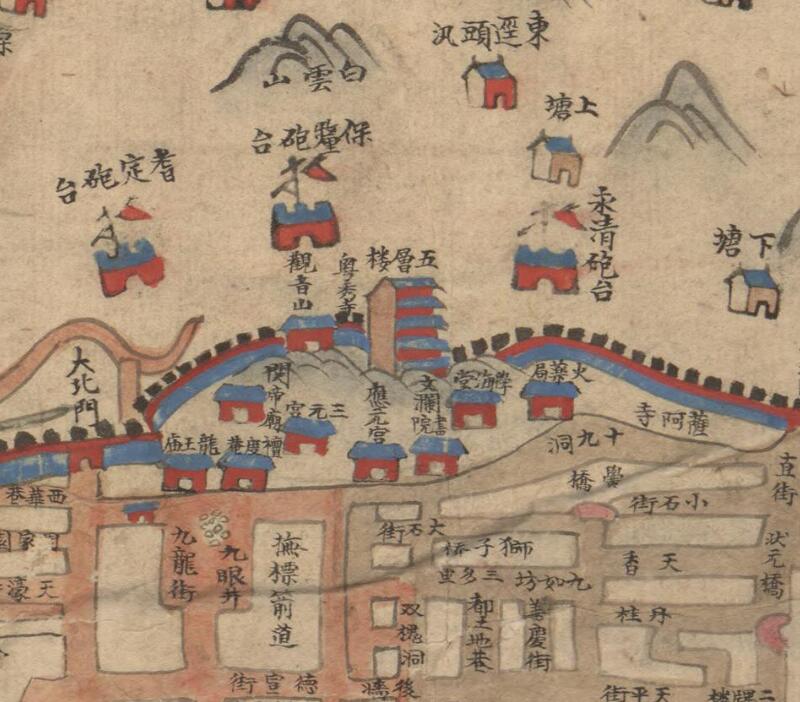 東逕頭汛
白雲山
上塘
保釐砲台
耆定砲台
永清砲台
下塘
五層楼
粤秀寺
觀音山
大北門
火藥局
學海堂
文瀾書院
應元宮
三元宮
關帝廟
薩阿寺
十九洞
龍王庙
禮度巷
直街
西華巷
小石街
大石街
獅子桥
九龍街
九眼井
撫標箭道
天香
狀元橋
天濠
九如坊
三多里
都土地巷
善慶街
丹桂
双槐洞
德宣街
天平街